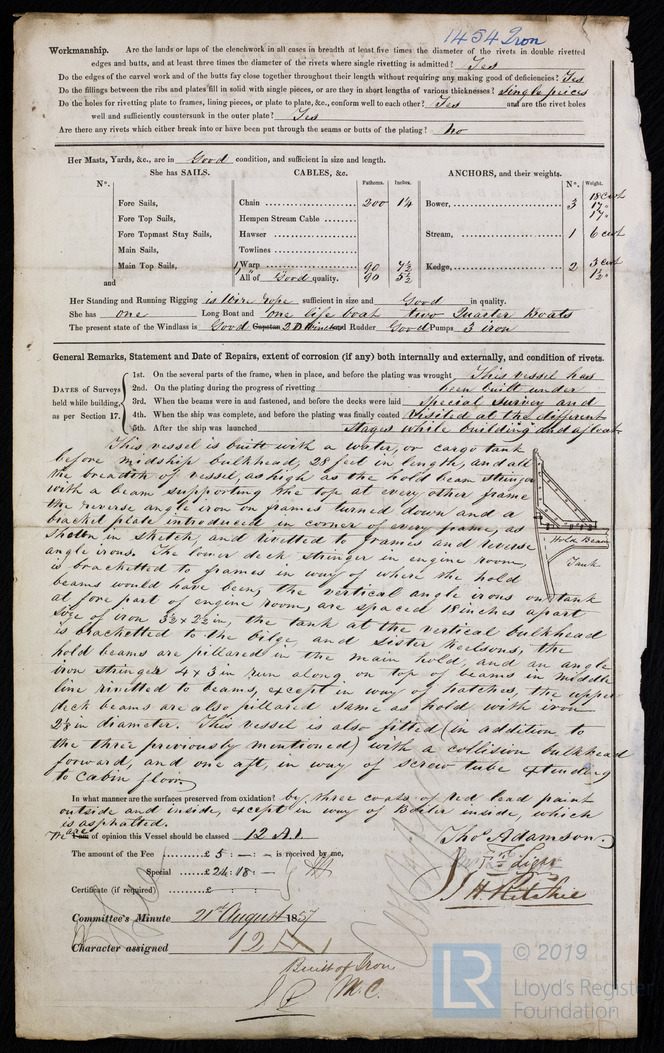 1454 Iron
Workmanship. Are the lands or laps of the clenchwork in all cases in breadth at least five times the diameter of the rivets in double rivetted
edges and butts, and at least three times the diameter of the rivets where single rivetting is admitted? Yes
Do the edges of the carvel work and of the butts fay close together throughout their length without requiring any making good of deficiencies? Yes
Do the fillings between the ribs and plates fill in solid with single pieces, or are they in short lengths of various thicknesses? Single pieces
Do the holes for rivetting plate to frames, lining pieces, or plate to plate, &c., conform well to each other? Yes and are the rivet holes
well and sufficiently countersunk in the outer plate? Yes
Are there any rivets which either break into or have been put through the seams or butts of the plating? No
Her Masts, Yards, &c., are in Good condition, and sufficient in size and length.
She has SAILS. CABLES, &c. ANCHORS, and their weights.
Nº. Fathoms. Inches. Nº. Weight.
Fore Sails, Chain 200 1¼ Bower, 3 18 cwt
17 "
17 "
Fore Top Sails, Hempen Stream Cable
Fore Topmast Stay Sails, Hawser Stream, 1 6 cwt
Main Sails, Towlines
Main Top Sails, Warp 90 7½ Kedge, 2 3 cwt
and All of Good quality. 90 5½ 1½ "
Her Standing and Running Rigging is Wire rope sufficient in size and Good in quality.
She has one Long Boat and one life boat two Quarter Boats
The present state of the Windlass is Good Capstan 2 D Winch and Rudder Good Pumps 3 iron
General Remarks, Statement and Date of Repairs, extent of corrosion (if any) both internally and externally, and condition of rivets.
DATES of Surveys
held while building,
as per Section 17.
1st. On the several parts of the frame, when in place, and before the plating was wrought This vessel has
2nd. On the plating during the progress of rivetting been built under
3rd. When the beams were in and fastened, and before the decks were laid Special survey and
4th. When the ship was complete, and before the plating was finally coated visited at the different
5th. After the ship was launched stages while building and afloat
This vessel is built with a water, or cargo tank
before midship bulkhead, 28 feet in length, and all
the breadth of vessel, as high as the hold beam stringer
with a beam supporting the top at every other frame
the reverse angle iron on frames turned down and a
bracket plate introduced in corner of every frame, as
shown in sketch, and rivetted to frames and reverse
angle irons. The lower deck stringer in engine room,
is bracketted to frames in way of where the hold
beams would have been, the vertical angle irons on tank
at fore part of engine room, are spaced 18 inches apart
size of iron 3½ x 2½ in, the tank at the vertical bulkhead
is bracketted to the bilge, and Sister Keelsons, the
hold beams are pillared in the main hold, and an angle
iron stringer 4 x 3 in run along, on top of beams in middle
line rivetted to beams, except in way of hatches, the upper
deck beams are also pillared same as hold with iron
2⅛ in diameter. This vessel is also fitted (in addition to
the three previously mentioned) with a collision bulkhead
forward, and one aft, in way of screw tube extending
to cabin floor
Hold Beam
Tank
In what manner are the surfaces preserved from oxidation? by three coats of red lead paint
outside and inside, except in way of Boiler inside, which
is asphalted.
We are I am of opinion this Vessel should be classed 12 A.1
Thos Adamson
The amount of the Fee £ 5 : — : — is received by me,
Special £ 24 : 18 : —
J H Ritchie
Certificate (if required) £ : :
Committee's Minute 21st August 1857
Character assigned 12 A1
Built of Iron
M.C.
LR
© 2019
Lloyd's Register
Foundation